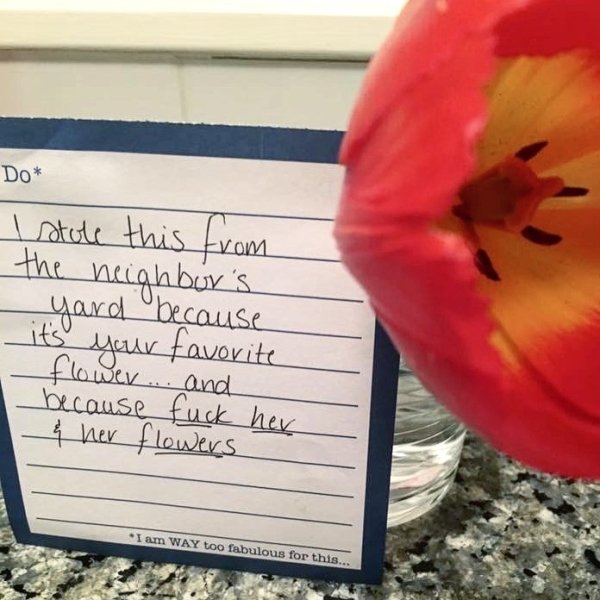 Do*
I stole this from
the neighbor's
yard because
it's your favorite
flower... and
because fuck her
& her flowers
*I am WAY too fabulous for this...